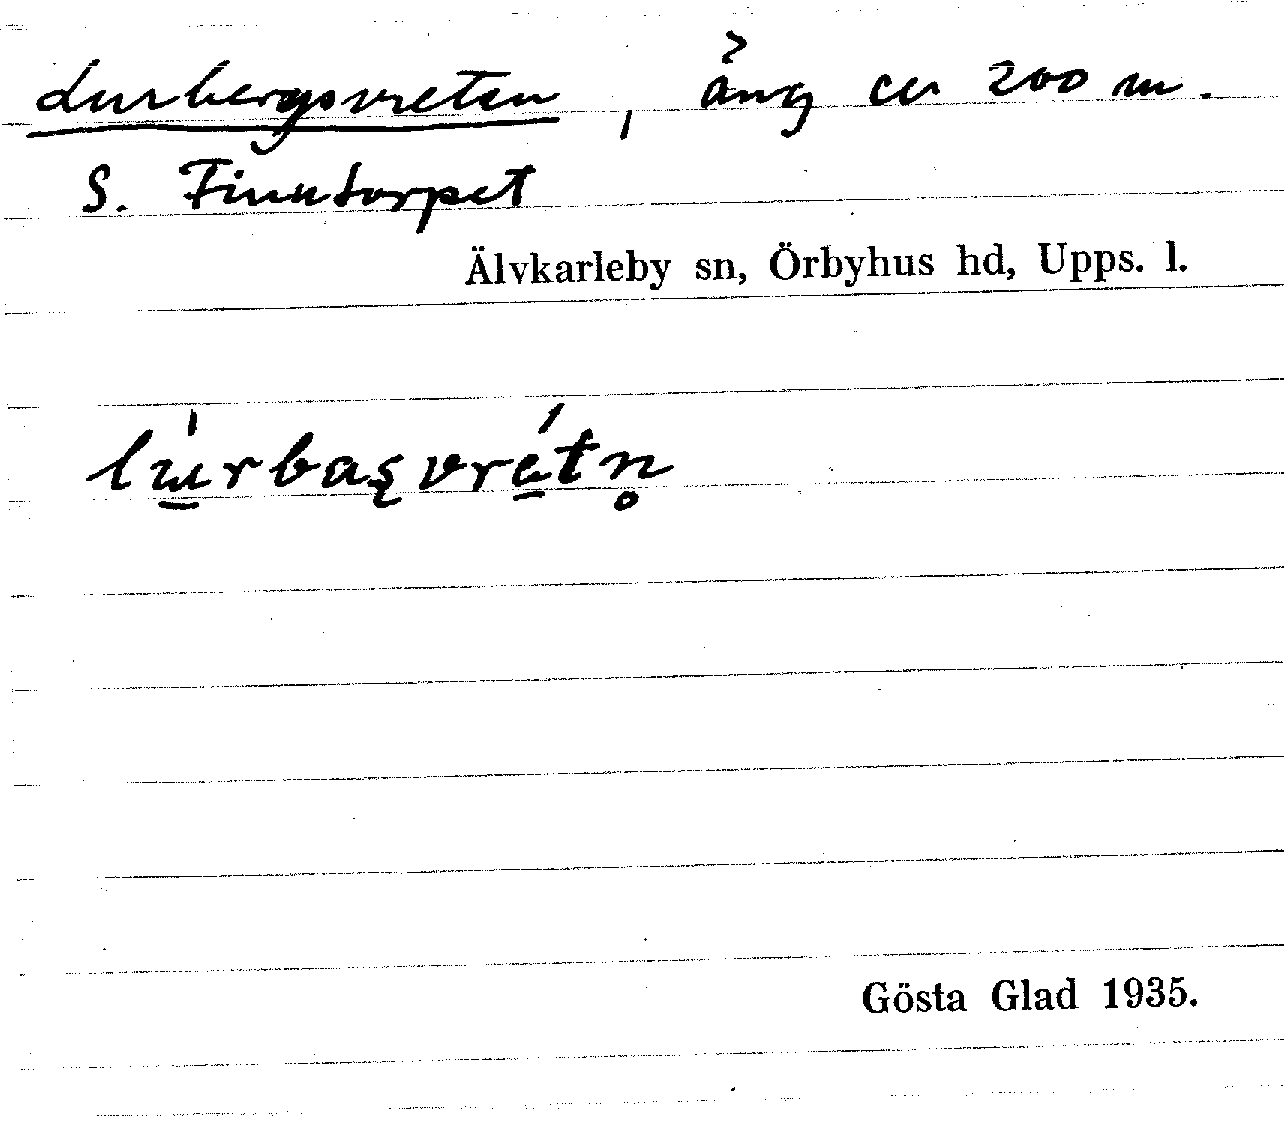 Lurbergsvreten, äng ca 200 m.
S. Finntorpet
Älvkarleby sn, Örbyhus hd, Upps. l.
lu̠̍rbaȿvré̠tn̥
Gösta Glad 1935.